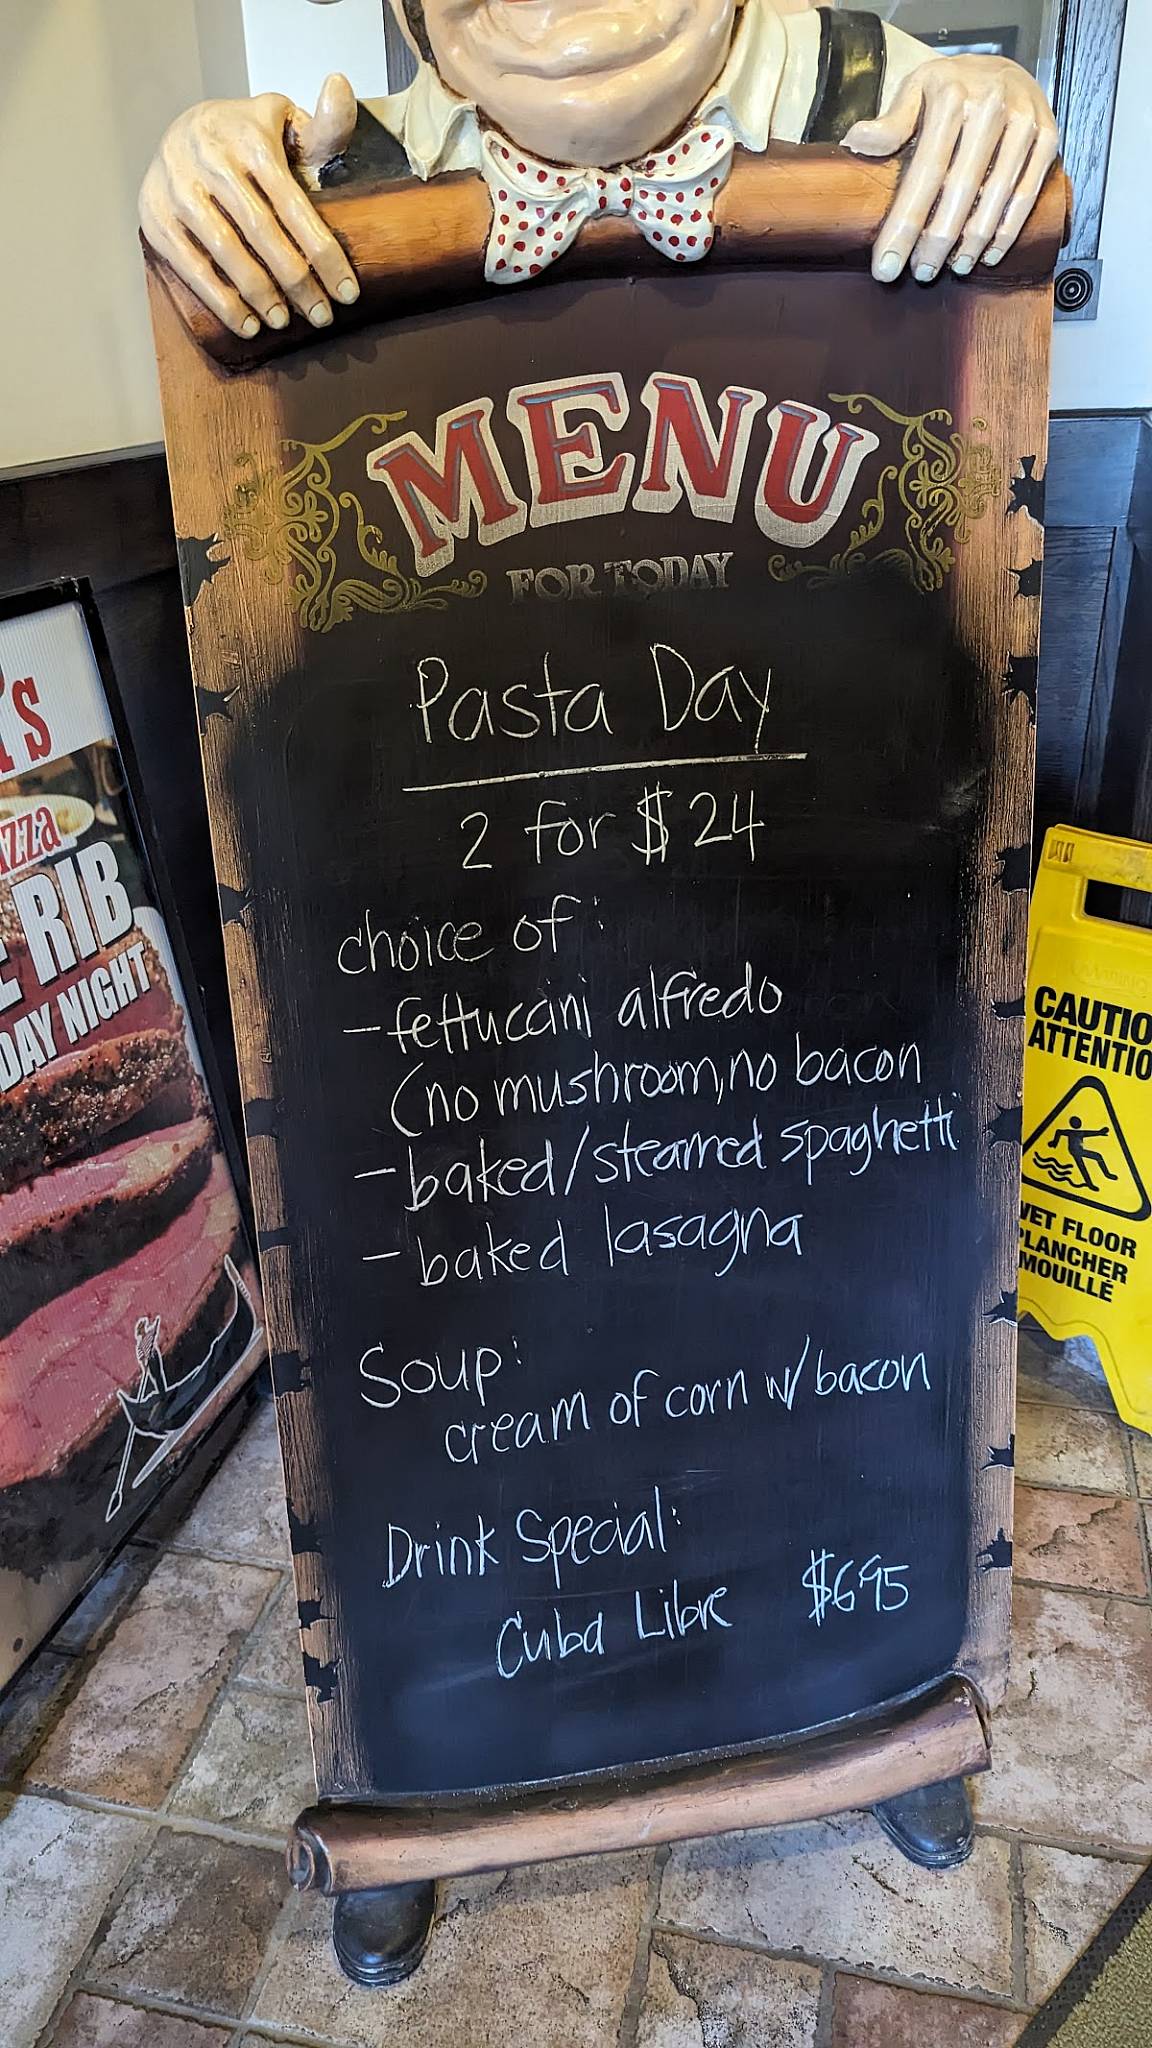 MENU
FOR TODAY
Pasta Day
2 for $24
choice of:
- fettuccini alfredo
(no mushroom, no bacon
- baked/steamed spaghetti
- baked lasagna
Soup:
cream of corn w/ bacon
Drink Special:
Cuba Libre $6.95
's
RIB
DAY NIGHT
CAUTIO
ATTENTIO
WET FLOOR
PLANCHER
MOUILLÉ